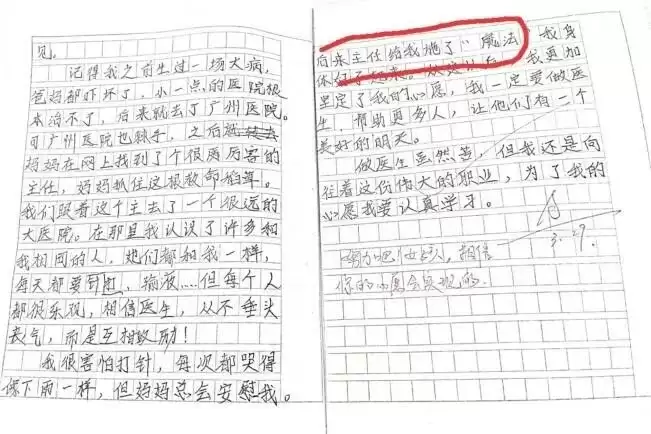 见。
记得我之前生过一场大病，
爸妈都吓坏了，小一点的医院根
本治不了，后来就去了广州医院。
可广州医院也棘手，之后就
妈妈在网上找到了个很厉厉害的
主任，妈妈抓住这根救命稻草。
我们跟着这个主去了一个很远的
大医院。在那里我认识了许多和
我相同的人，她们都和我一样，
每天都要打针，输液……但每个人
都很乐观，相信医生，从不垂头
丧气，而是互相鼓励！
我很害怕打针，每次都哭得
像下雨一样，但妈妈总会安慰我。
后来主任给我施了“魔法”，我身
体好了起来。从这以后，我更加
坚定了我的心愿，我一定要做医
生，帮助更多人，让他们有一个
美好的明天。
做医生虽然苦，但我还是向
往着这份伟大的职业，为了我的
心愿我要认真学习。
3.27.
努力吧！女孩，相信
你的心愿会实现的。